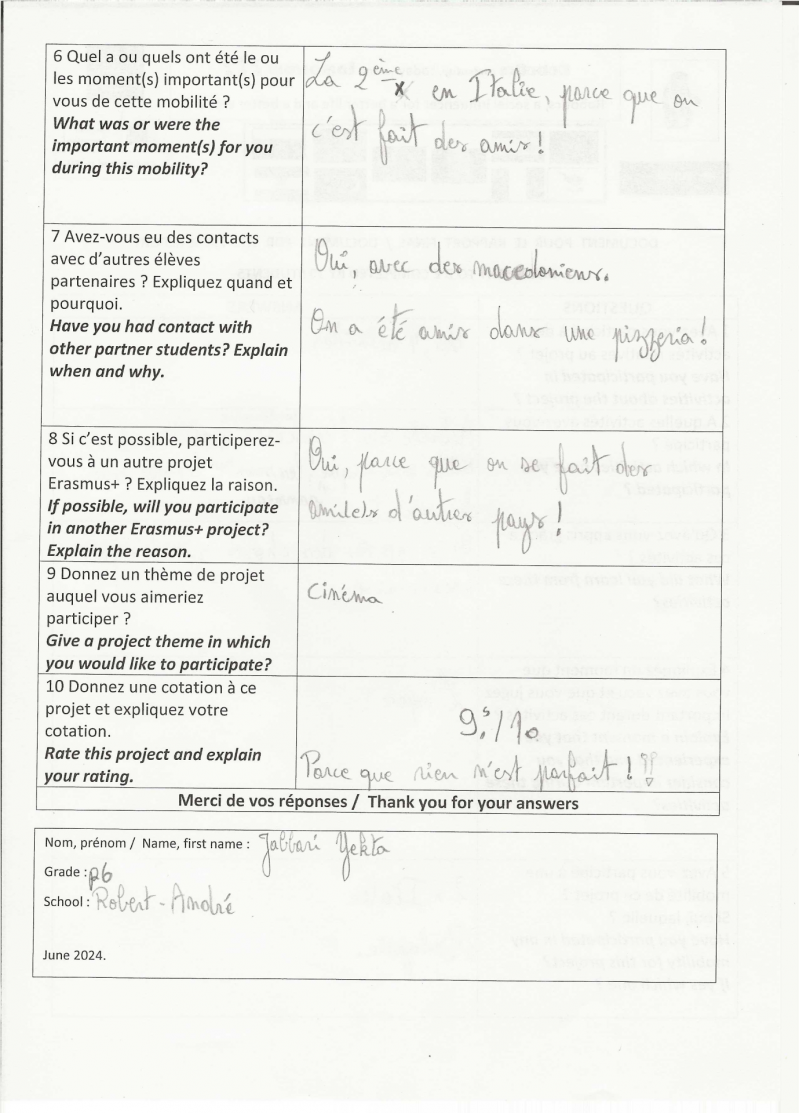 6 Quel a ou quels ont été le ou
les moment(s) important(s) pour
vous de cette mobilité ?
What was or were the
important moment(s) for you
during this mobility?
La 2ème x en Italie, parce que on
c'est fait des amis !
7 Avez-vous eu des contacts
avec d'autres élèves
partenaires ? Expliquez quand et
pourquoi.
Have you had contact with
other partner students? Explain
when and why.
Oui, avec des macedoniens.
On a été amis dans une pizzeria !
8 Si c'est possible, participerez-
vous à un autre projet
Erasmus+ ? Expliquez la raison.
If possible, will you participate
in another Erasmus+ project?
Explain the reason.
Oui, parce que on se fait des
ami(e)s d'autres pays !
9 Donnez un thème de projet
auquel vous aimeriez
participer ?
Give a project theme in which
you would like to participate?
Cinéma
10 Donnez une cotation à ce
projet et expliquez votre
cotation.
Rate this project and explain
your rating.
9,5/10
Parce que rien n'est parfait !
Merci de vos réponses / Thank you for your answers
Nom, prénom / Name, first name : Jabbari Yekta
Grade : p6
School : Robert-André
June 2024.